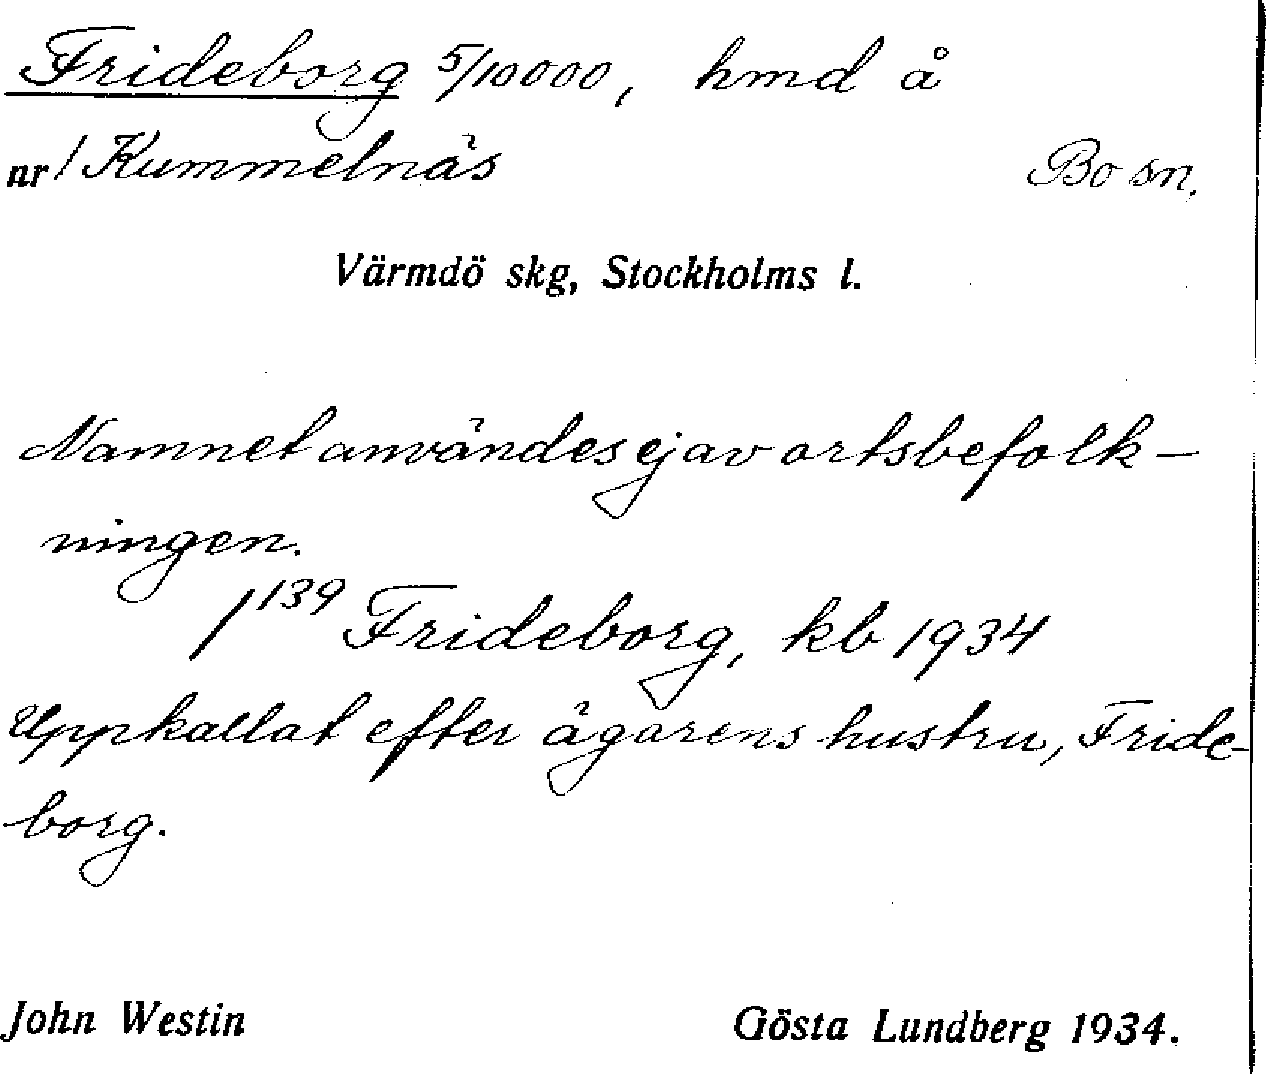 Frideborg 5/10000, hmd å
nr 1 Kummelnäs Bo sn.
Värmdö skg, Stockholms l.
Namnet användes ej av ortsbefolk-
ningen.
1 139 Frideborg, kb 1934
Uppkallat efter ägarens hustru, Fride-
borg.
John Westin Gösta Lundberg 1934.